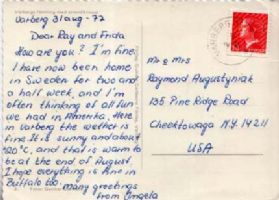 Varberg 31 aug - 77
Dear Ray and Frida
How are you? I'm fine.
I have now been home
in Sweden for two and
a half week, and I'm
often thinking of all fun
we had in Amerika. Here
in Varberg the wether is
fine. It is sunny and about
20°C, and that is warm to
be at the end of August.
I hope everything is fine in
Buffalo too.
many greetings
from Angela
Mr & Mrs
Raymond Augustyniak
135 Pine Ridge Road
Cheektowaga N.Y. 14211
USA